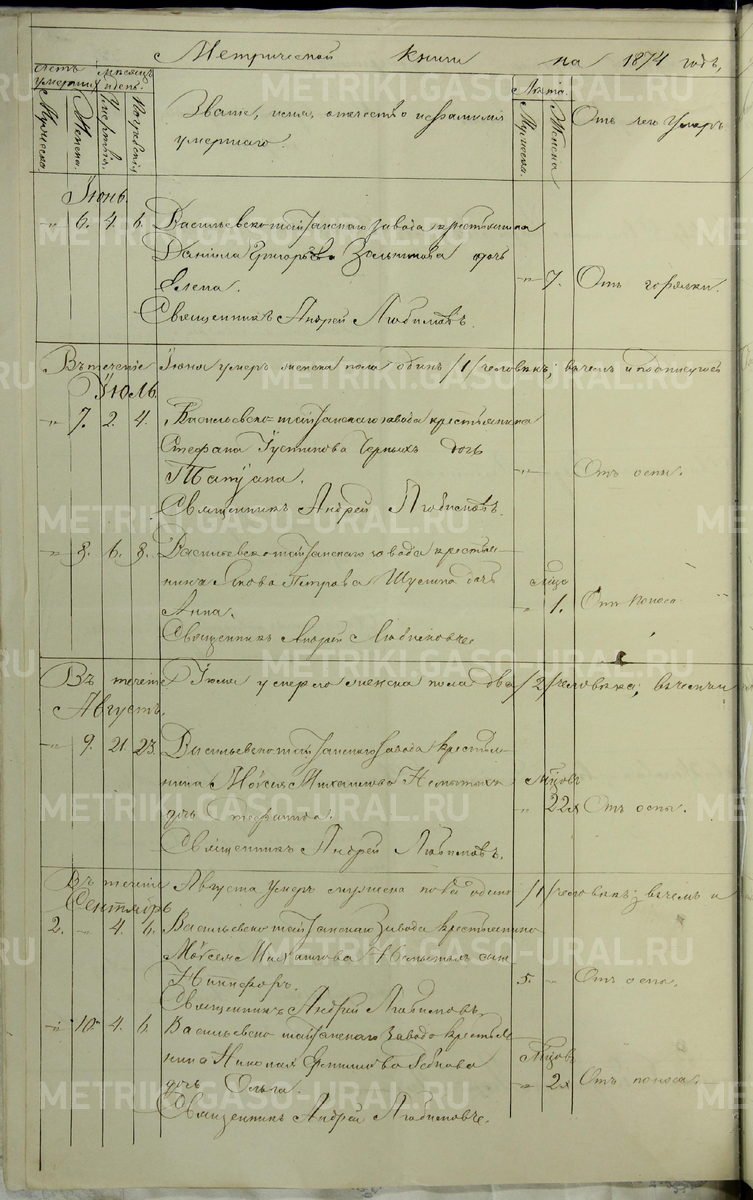 Метрической книги на 1874 годъ,
Летъ умершихъ
Мѣсяцъ и день.
Мужеска.
Женска.
Умертвія.
Погребенія
Званіе, имя, отчество и фамилія
умершаго.
Лѣта.
Мужеска.
Женска
Отъ чего умеръ
Іюнь.
" 6. 4. 6. Васильевско-шайтанскаго завода крестьянина
Даниила Григорьева дочь
Елена. " 7. Отъ горячки.
Священникъ Андрей Любимовъ.
Въ теченіе Іюня умеръ женска пола одинъ /1/ человѣкъ; въ чемъ и подписуюсь
Іюль
" 7. 2. 4. Васильевско-шайтанскаго завода крестьянина
Стефана Устинова Черныхъ дочь
Татіана. " Отъ оспы.
Священникъ Андрей Любимовъ.
" 8. 6. 8. Васильевско шайтанскаго завода кресть-
янина Якова Петрова дочь
Анна. " 1. Отъ поноса
Священникъ Андрей Любимовъ.
Въ теченіе Іюля умерло женска пола два /2/ человѣка; въ чемъ и
Августъ.
" 9. 21. 23. Васильевско шайтанскаго завода крестья-
нина Моисея Михаилова Немытыхъ Мѣсяцовъ
дочь " 22х Отъ оспы.
Священникъ Андрей Любимовъ.
Въ теченіе Августа умеръ пола одинъ /1/ человѣкъ; въ чемъ и
Сентябрь
2. " 4. 6. Васильевско шайтанскаго завода крестьянина
Моисея Михаилова Немытыхъ сынъ
Никифоръ. 5. " Отъ оспы.
Священникъ Андрей Любимовъ.
" 10 4. 6. Васильевско шайтанскаго завода крестья-
нина Николая Мѣсяцовъ
дочь Ольга. " 2х Отъ поноса.
Священникъ Андрей Любимовъ.
METRIKI.GASO-URAL.RU